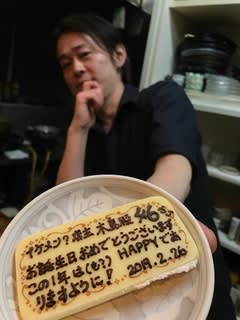 イケメン?店主 木島殿 46さい
お誕生日おめでとうございます
この1年は(も?)HAPPYであ
りますように! 2019.2.26